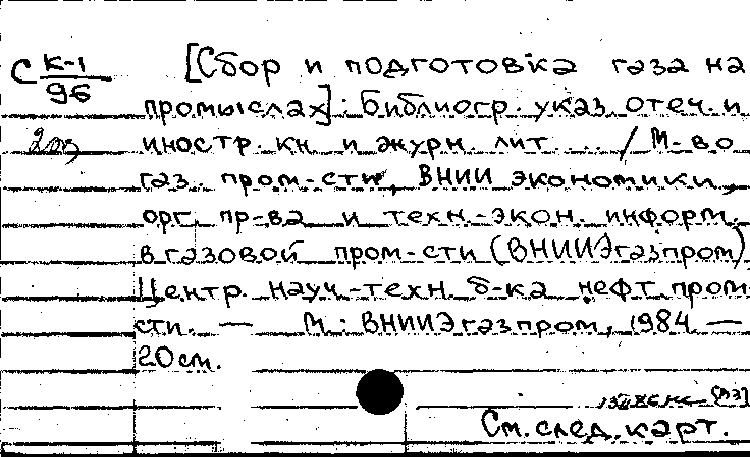 С К-1
96
[Сбор и подготовка газа на
промыслах]: Библиогр. указ. отеч. и
2оз
иностр. кн. и журн. лит. ... / М-во
газ. пром-сти, ВНИИ экономики,
орг. пр-ва и техн.-экон. информ.
в газовой пром-сти (ВНИИЭгазпром)
Центр. науч.-техн. б-ка нефт. пром-
сти. — М.: ВНИИЭгазпром, 1984 —
20 см.
См. след. карт.